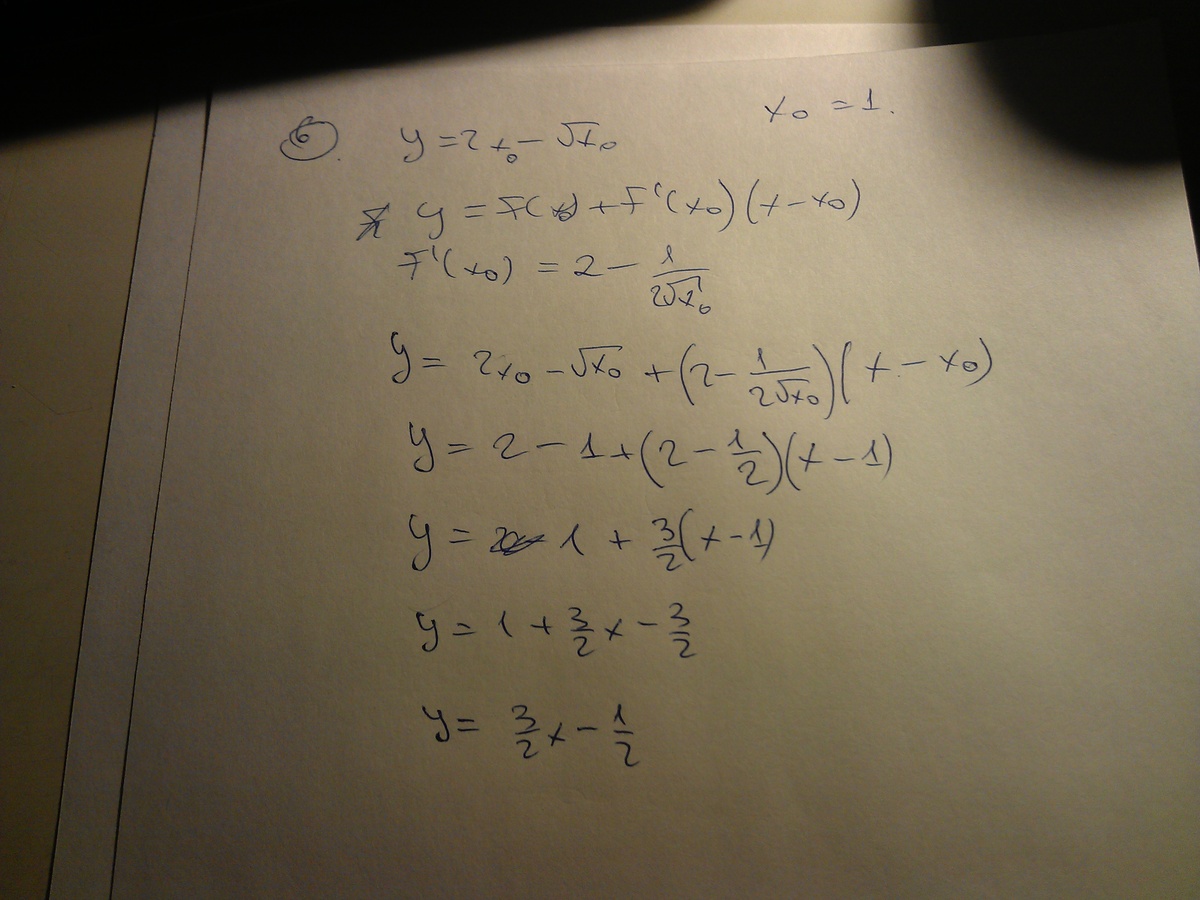 x₀ = 1.
⑥. y = 2x₀ − √x₀
y = F(x₀) + F'(x₀)(x − x₀)
F'(x₀) = 2 − 1/(2√x₀)
y = 2x₀ − √x₀ + (2 − 1/(2√x₀))(x − x₀)
y = 2 − 1 + (2 − 1/2)(x − 1)
y = 1 + 3/2(x − 1)
y = 1 + 3/2 x − 3/2
y = 3/2 x − 1/2